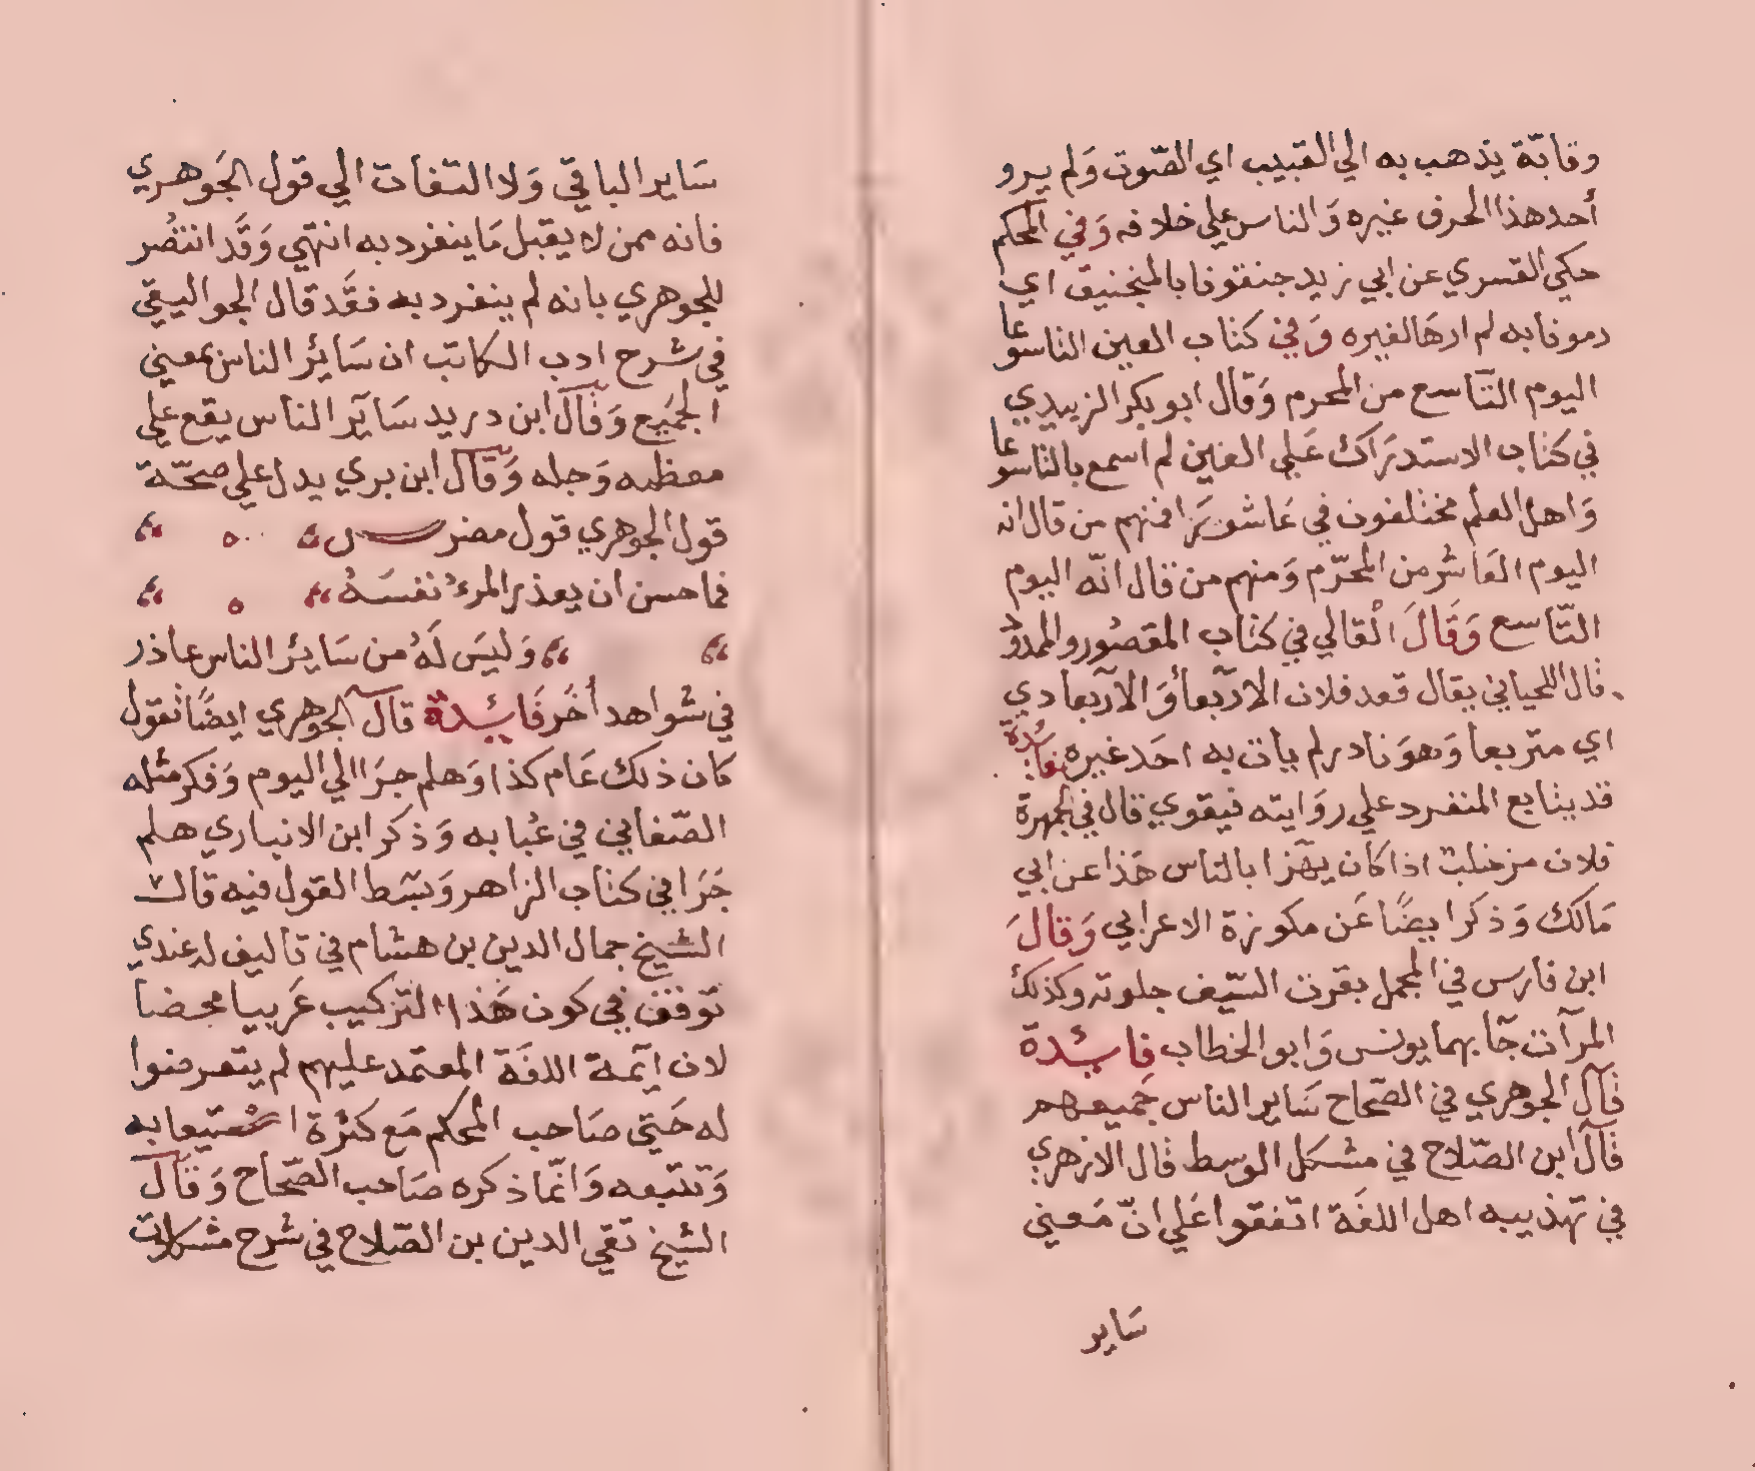 وقابّة يذهب به الي القبيب اي الصّوت وَلم يرو
أحد هذا الحرف غيره وَالناس علي خلافه وَفي المحكم
حكي القسري عن ابي زيد جنقونا بالمنجنيق اي
رمونا به لم ارهَا لغيره وَفي كتاب العين التاسوعا
اليوم التّاسع من المحرم وَقال ابو بكر الزبيدي
في كتاب الاستدرَاك عَلي العين لم اسمع بالتاسوعا
وَاهل العلم مختلفون في عَاشورَا فمنهم من قال انه
اليوم العَاشر من المحرّم وَمنهم من قال انّه اليوم
التّاسع وَقَالَ الْقالي في كتاب المقصُور والممدوُد
قال اللحياني يقال قعد فلان الاربَعاُ وَ الاربَعا دي
اي متربعا وَهوَ نادر لم يات به احَد غيره فائدة
قد يتابع المنفرد علي روَايته فيقوي قال في الجمهرة
فلان مزخلب اذا كان يهزا بالناس هَذا عن ابي
مَالك وَذكر ايضًا عَن مكوزة الاعرابي وَقالَ
ابن فارس في المجمل بقرت السّيف جلوته وكذلك
المرآت جَآ بهما يونس وَابو الخطاب فائدة
قال الجوهري في الصّحاح سَاير الناس جَميعهم
قال ابن الصّلاح في مشكل الوسط قال الازهري
في تهذيبه اهل اللغَة اتفقوا عَلي انّ مَعني
سَاير
سَاير الباقي وَلا التفات الي قول الجَوهري
فانه ممن لا يقبل مَا ينفرد به انتهي وَقَد انتصُر
للجوهري بانه لم ينفرد به فقَد قال الجواليقي
في شرح ادب الكاتب ان سَائر الناس بمعني
الجَميع وَقال ابن دريد سَائر الناس يقع علي
معظمه وَجله وَقال ابن بري يدل علي صحّة
قول الجوهري قول مضرس
فما حسن ان يعذر المرءُ نفسَهُ
وَليسَ لَهُ من سَائر الناس عاذر
في شواهد أخَر فَائدة قال الجوهري ايضًا تقول
كان ذلك عَام كذا وَهلم جرَا الي اليوم وَفكر مثله
الصّغاني في عُبابه وَذكر ابن الانباري هلم
جَرَا في كتاب الزاهر وَبسَط القول فيه قال
الشيخ جمال الدين بن هشام في تاليف له عندي
توقف في كون هَذا التركيب عَربيا محضا
لان ايّمة اللغَة المعتمَد عليهم لم يتعرضوا
له حَتي صَاحب المحكم مَع كثرة استيعابه
وَتتبعه وَانّما ذكره صَاحب الصّحاح وَقال
الشيخ تقي الدين بن الصّلاح في شرح مشكلات